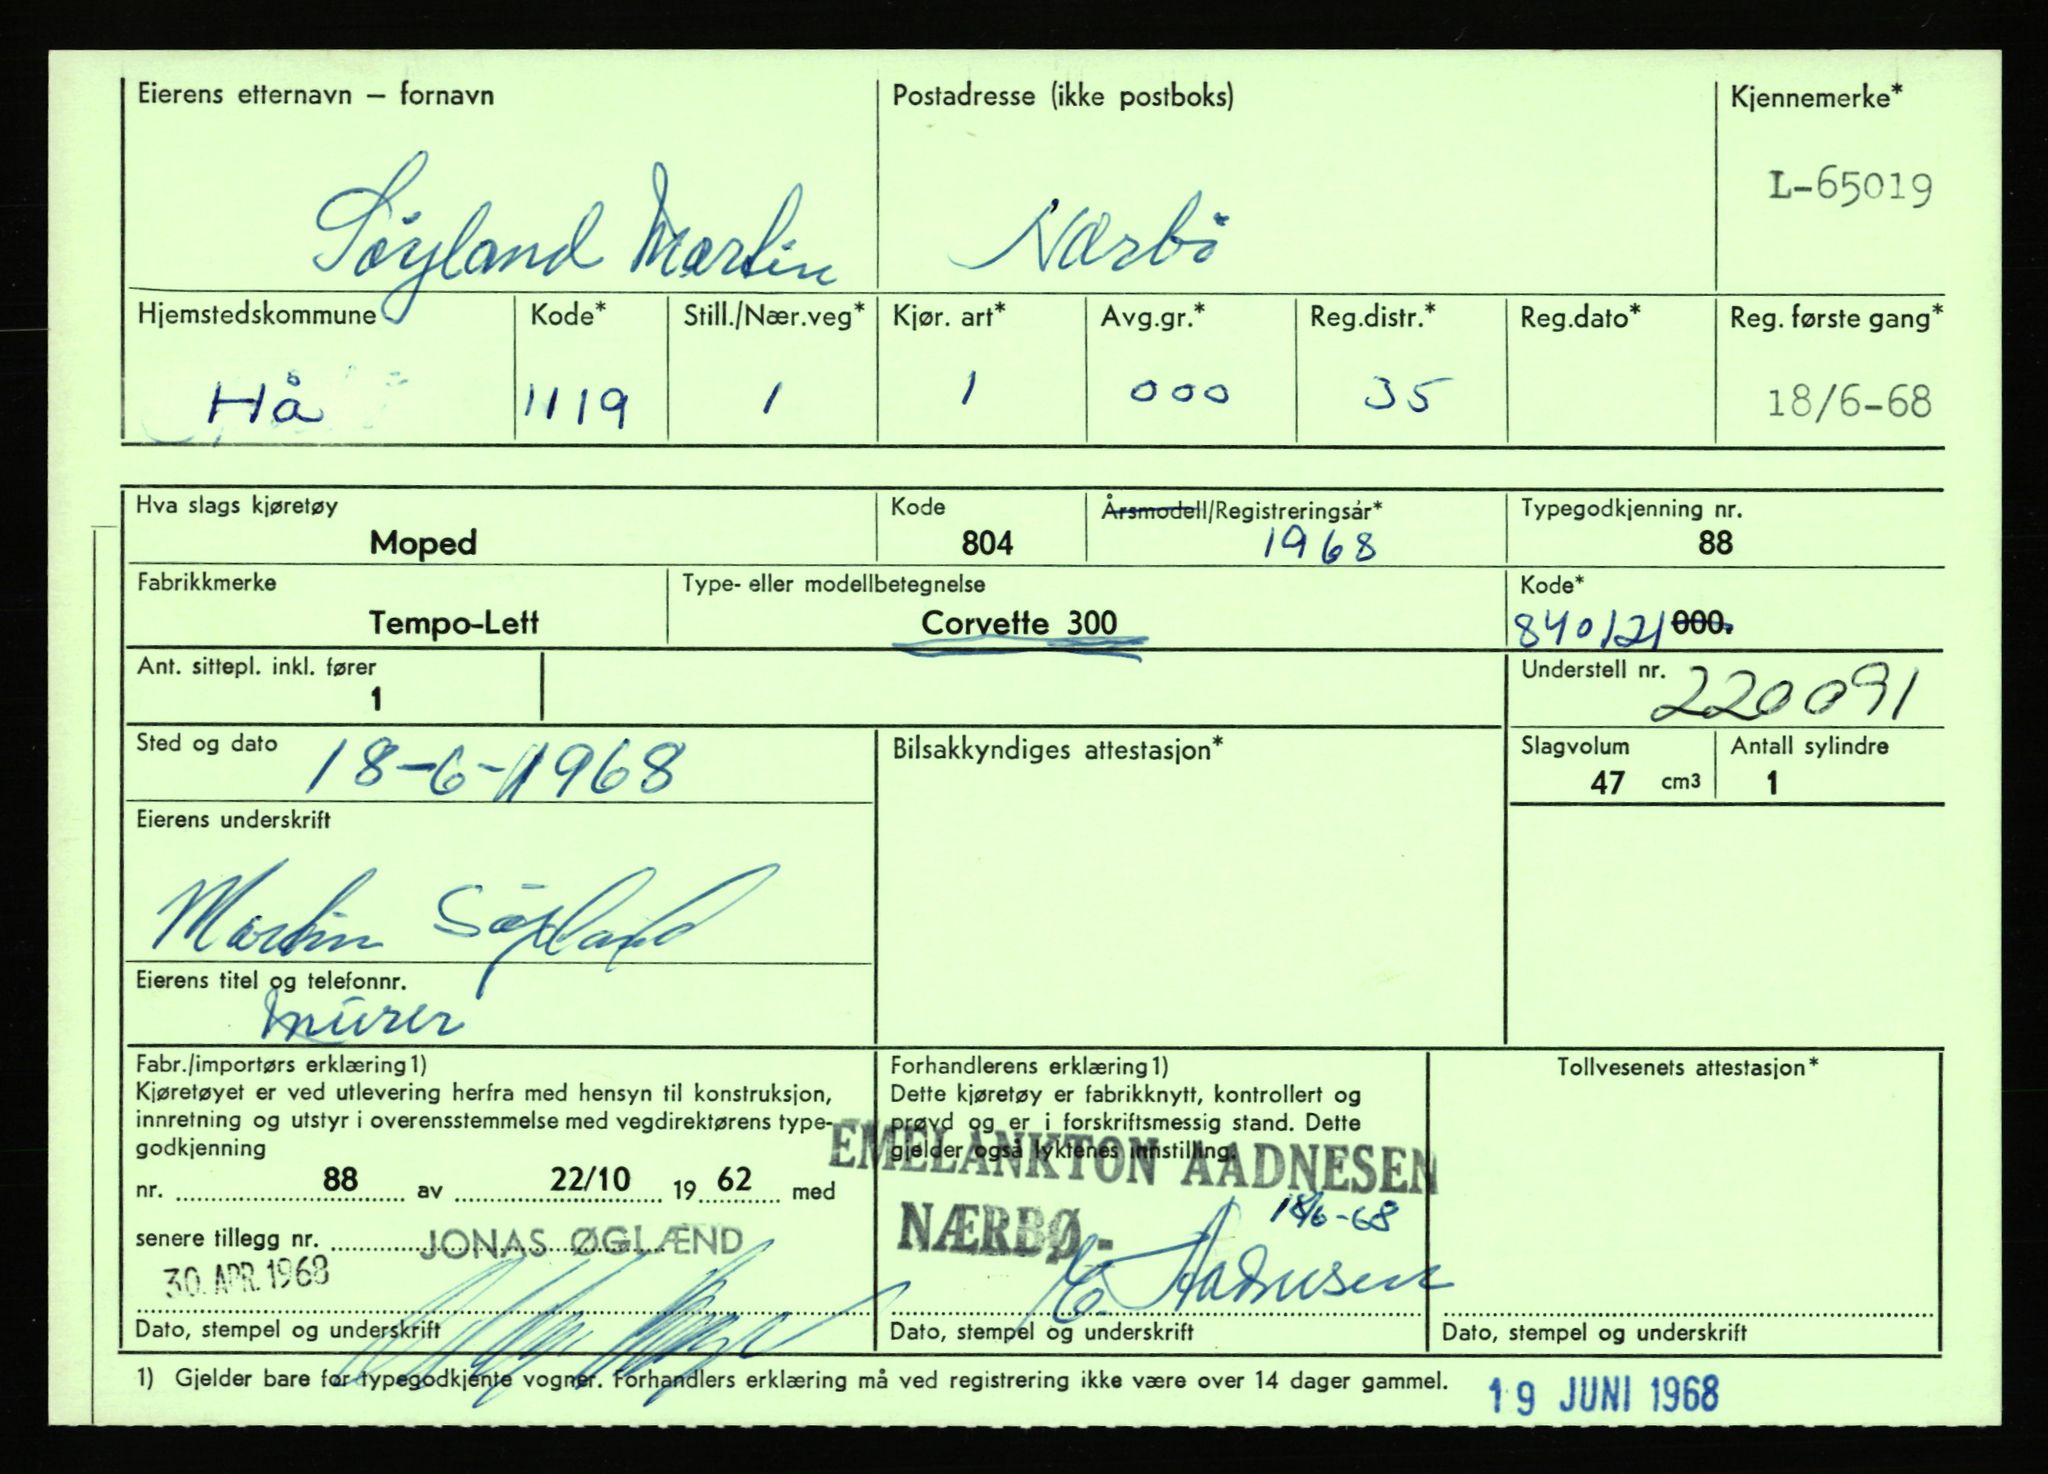 Eierens etternavn – fornavn
Postadresse (ikke postboks)
Kjennemerke*
Søyland Martin
Nærbø
L-65019
Hjemstedskommune
Kode*
Still./Nær.veg*
Kjør. art*
Avg.gr.*
Reg.distr.*
Reg.dato*
Reg. første gang*
Hå
1119
1
1
000
35
18/6-68
Hva slags kjøretøy
Kode
Årsmodell/Registreringsår*
Typegodkjenning nr.
Moped
804
1968
88
Fabrikkmerke
Type- eller modellbetegnelse
Kode*
Tempo-Lett
Corvette 300
840121 000.
Ant. sittepl. inkl. fører
1
Understell nr.
220091
Sted og dato
18-6-1968
Bilsakkyndiges attestasjon*
Slagvolum
47 cm3
Antall sylindre
1
Eierens underskrift
Martin Søyland
Eierens titel og telefonnr.
Murer
Fabr./importørs erklæring 1)
Kjøretøyet er ved utlevering herfra med hensyn til konstruksjon,
innretning og utstyr i overensstemmelse med vegdirektørens type-
godkjenning
nr. 88 av 22/10 19 62 med
senere tillegg nr.
JONAS ØGLÆND
30. APR. 1968
Dato, stempel og underskrift
Forhandlerens erklæring 1)
Dette kjøretøy er fabrikknytt, kontrollert og
prøvd og er i forskriftsmessig stand. Dette
gjelder også lyktenes innstilling.
EMELANKTON AADNESEN
NÆRBØ-
18/6-68
E. Aadnesen
Dato, stempel og underskrift
Tollvesenets attestasjon*
Dato, stempel og underskrift
1) Gjelder bare for typegodkjente vogner. Forhandlers erklæring må ved registrering ikke være over 14 dager gammel.
19 JUNI 1968